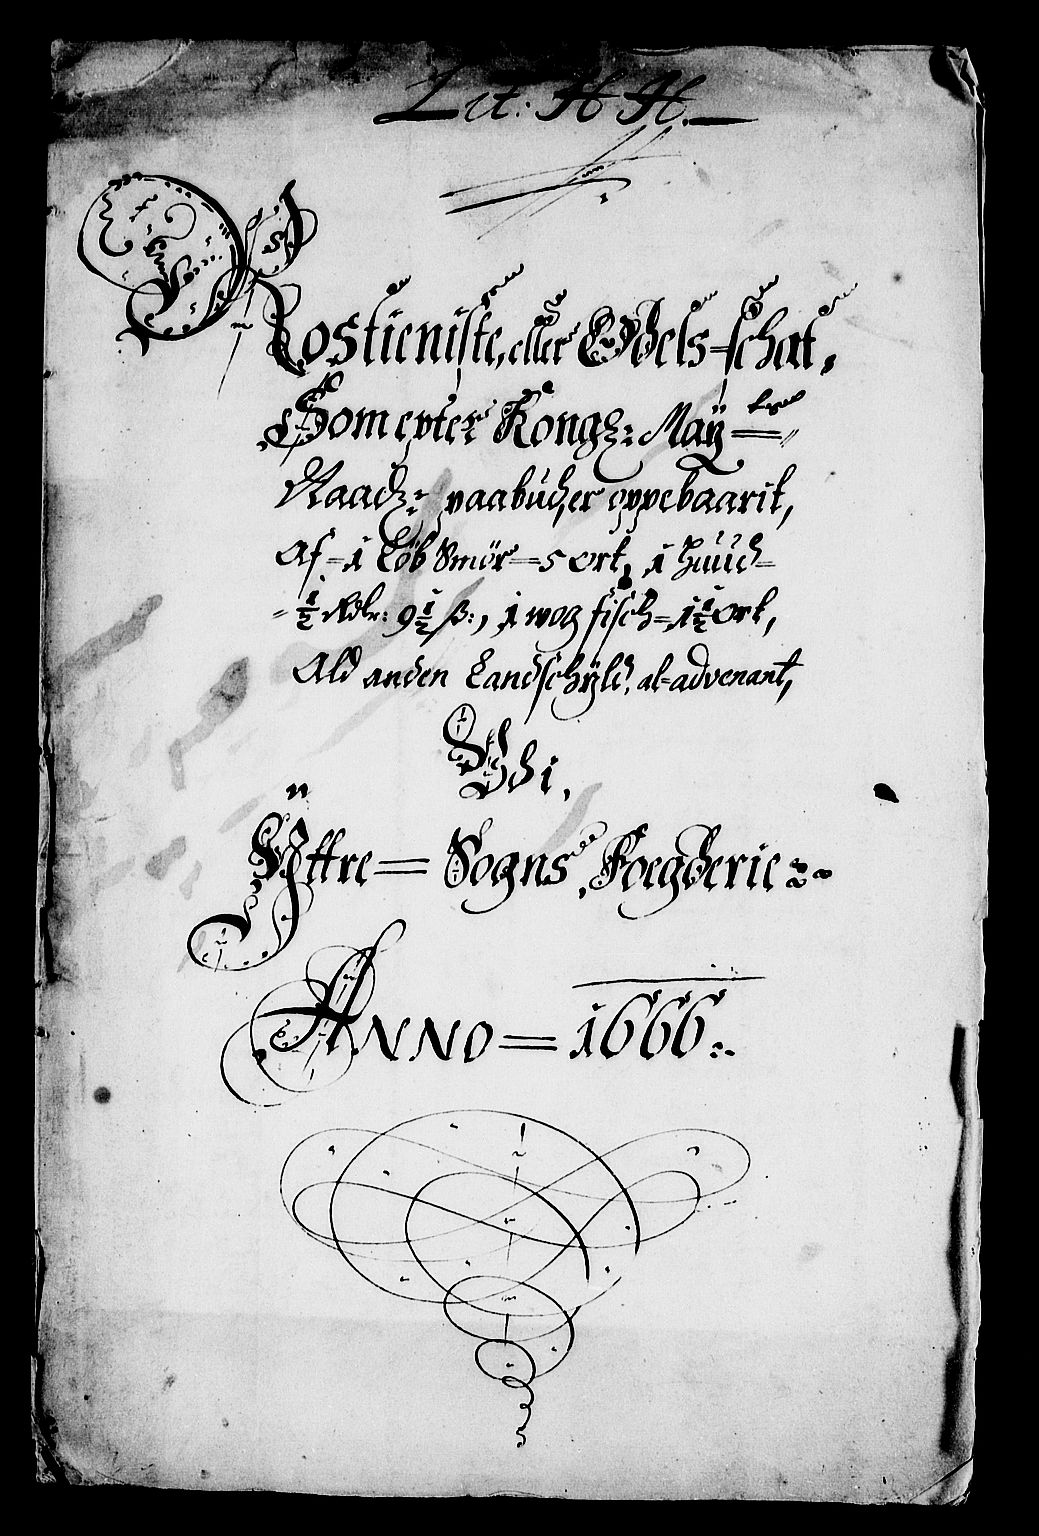 Lit: H H.
Rostieniste, eller Odels-schat,
Som epter Kongz: Maÿ=tz
Naadz: paabud, er oppebaarit,
Af=1 Löb Smör=5 ort, 1 huud=
=½ Rdr: 9½ β:, 1 wog fisch=1½ ort,
Ald anden Landschÿld, al-advenant,
Udi,
Ÿttre= Sogns, Foegderie:~
ANNO= 1666:.